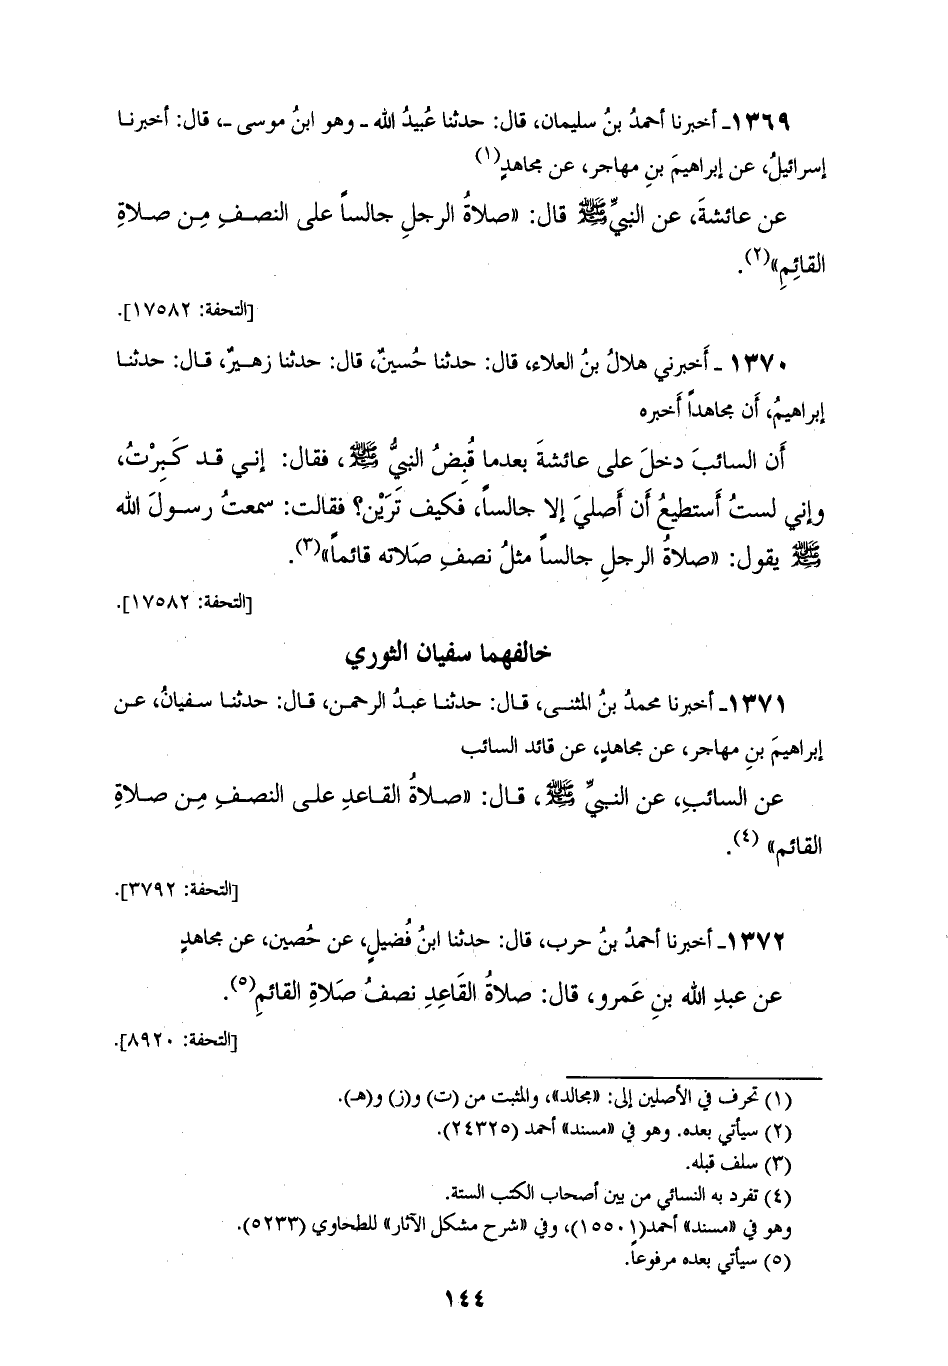 ١٣٦٩ـ أخبرنا أحمدُ بنُ سليمان، قال: حدثنا عُبيدُ الله ـ وهو ابنُ موسى ـ، قال: أخبرنا
إسرائيلُ، عن إبراهيمَ بنِ مهاجر، عن مجاهدٍ(١)
عن عائشةَ، عن النبيِّ ﷺ قال: «صلاةُ الرجلِ جالساً على النصفِ مِن صلاةِ
القائِمِ»(٢).
[التحفة: ١٧٥٨٢].
١٣٧٠ ـ أَخبرني هلالُ بنُ العلاء، قال: حدثنا حُسينٌ، قال: حدثنا زهيرٌ، قال: حدثنا
إبراهيمُ، أَن مجاهداً أَخبره
أَن السائبَ دخلَ على عائشةَ بعدما قُبِضُ النبيُّ ﷺ، فقال: إني قد كَبِرْتُ،
وإني لستُ أَستطيعُ أَن أُصليَ إلا جالساً، فكيف تَرَيْن؟ فقالت: سمعتُ رسولَ الله
ﷺ يقول: «صلاةُ الرجلِ جالساً مثلُ نصفِ صَلاته قائماً»(٣).
[التحفة: ١٧٥٨٢].
خالفهما سفيان الثوري
١٣٧١ـ أخبرنا محمدُ بنُ المثنى، قال: حدثنا عبدُ الرحمن، قال: حدثنا سفيانُ، عن
إبراهيمَ بنِ مهاجر، عن مجاهدٍ، عن قائد السائب
عن السائبِ، عن النبيِّ ﷺ، قال: «صلاةُ القاعدِ على النصفِ مِن صلاةِ
القائم» (٤).
[التحفة: ٣٧٩٢].
١٣٧٢ـ أخبرنا أحمدُ بنُ حرب، قال: حدثنا ابنُ فُضيلٍ، عن حُصين، عن مجاهدٍ
عن عبدِ الله بنِ عَمرو، قال: صلاةُ القَاعِدِ نصفُ صَلاةِ القائمِ(٥).
[التحفة: ٨٩٢٠].
(١) تحرف في الأصلين إلى: «مجالد»، والمثبت من (ت) و(ز) و(هـ).
(٢) سيأتي بعده. وهو في «مسند» أحمد (٢٤٣٢٥).
(٣) سلف قبله.
(٤) تفرد به النسائي من بين أصحاب الكتب الستة.
وهو في «مسند» أحمد(١٥٥٠١)، وفي «شرح مشكل الآثار» للطحاوي (٥٢٣٣).
(٥) سيأتي بعده مرفوعاً.
١٤٤